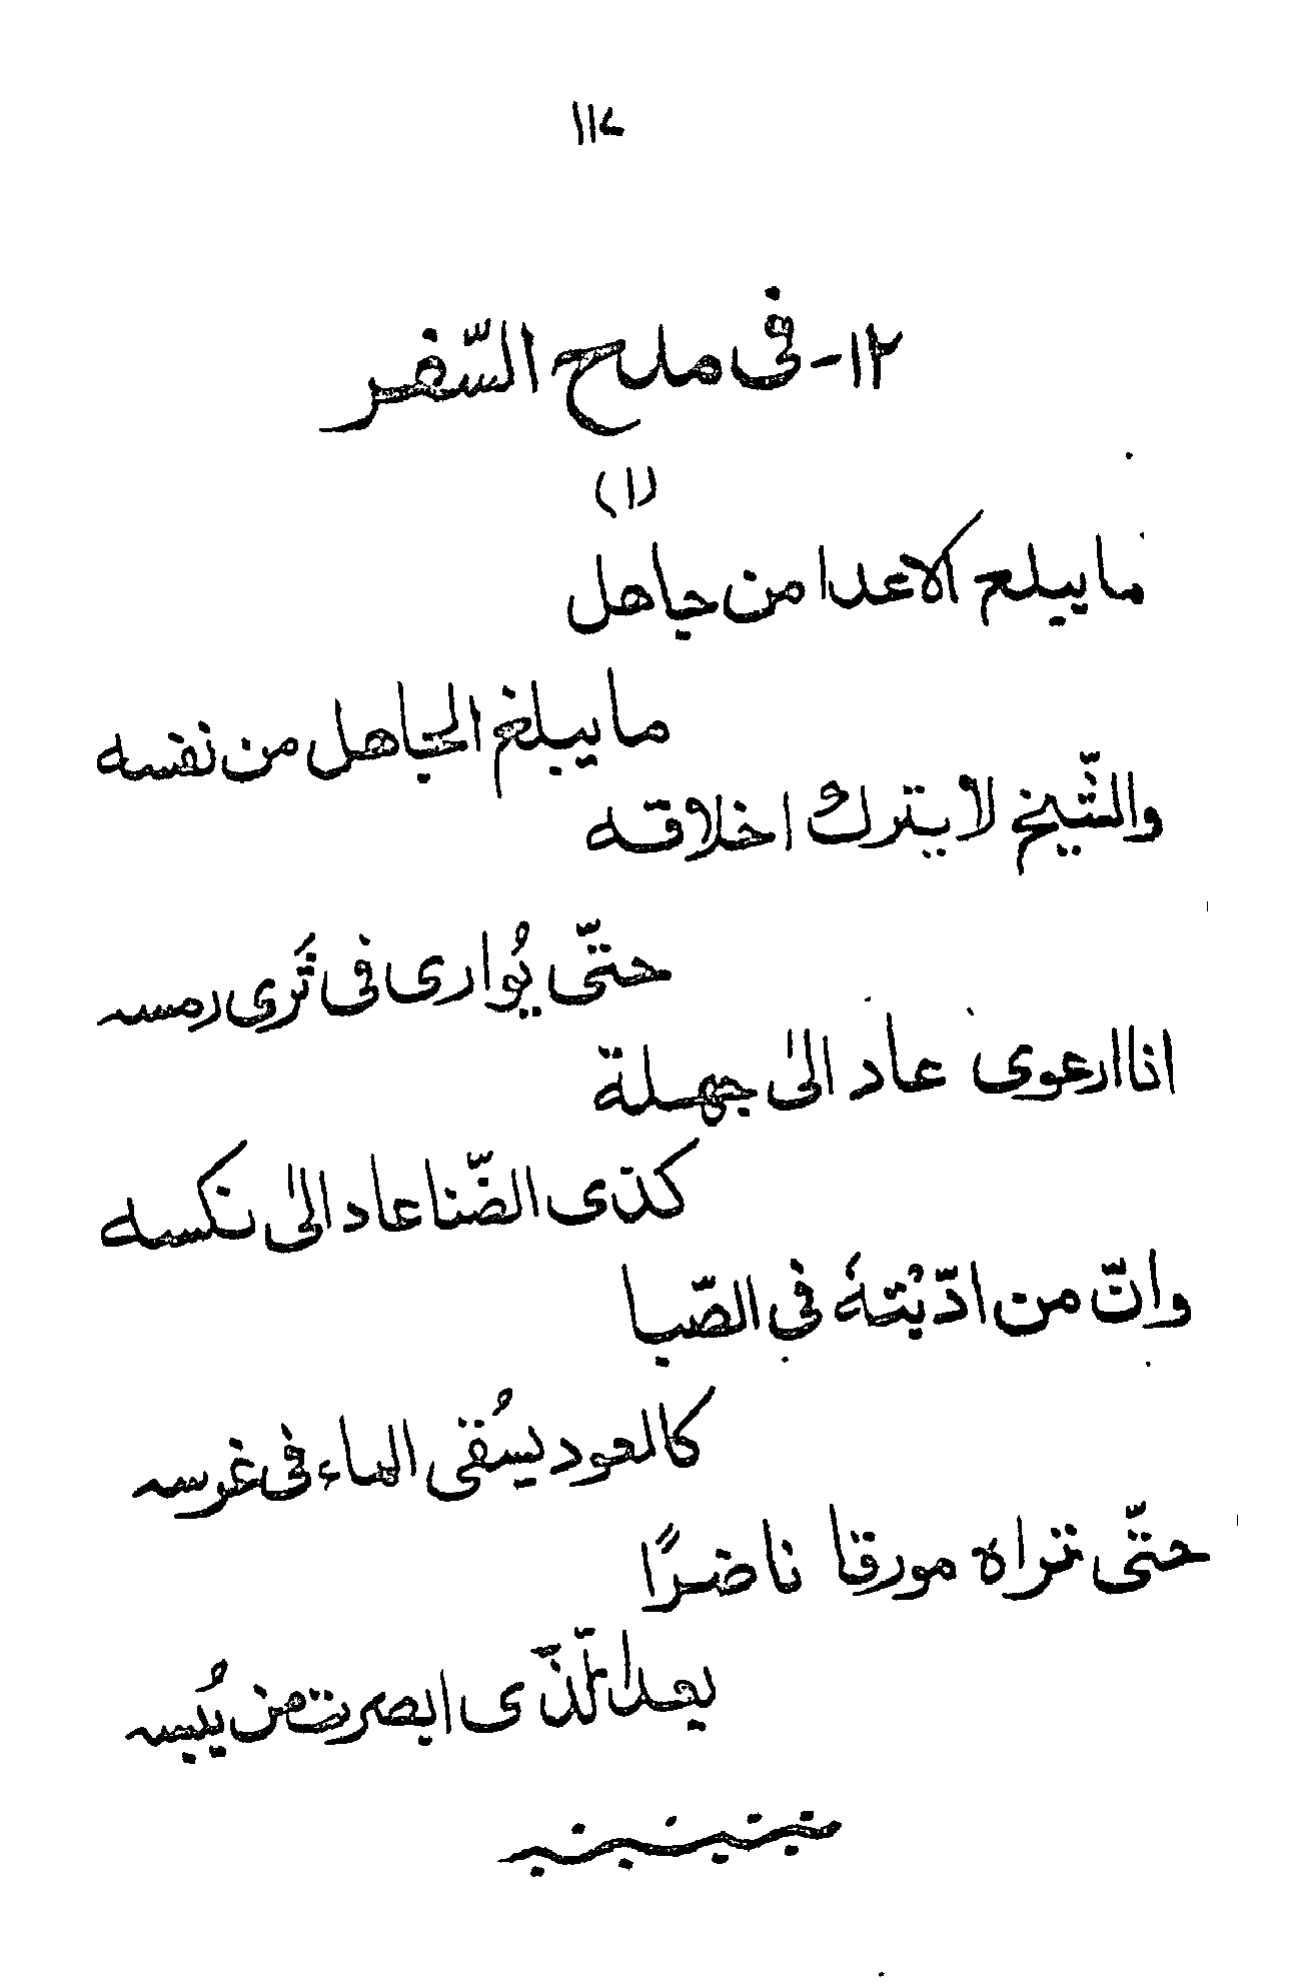 ١١٤
١٢- فى ملح السّفر
(١)
ما يبلع الاعدا من جاهل
ما يبلغ الجاهل من نفسه
والشّيخ لا يترك اخلاقه
حتّى يُوارى فى ثَرى رمسه
انا ارعوى عاد الىٰ جهلة
كذى الضّنا عاد الىٰ نكسه
وانّ من ادّبْتهٗ في الصّبا
كالعود يسُقى الماء فى غرسه
حتّى تراه مورقا ناضرًا
بعد الّذى ابصرت من يُبسه